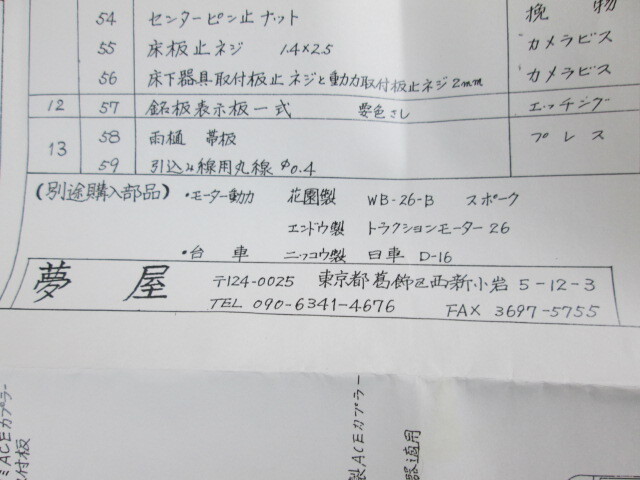 54 センターピン止ナット 挽物
55 床板止ネジ 1.4×2.5 カメラビス
56 床下器具取付板止ネジと動力取付板止ネジ2mm カメラビス
12 57 銘板表示板一式 要色さし エッチング
13 58 雨樋 帯板 プレス
59 引込み線用丸線φ0.4
(別途購入部品) ・モーター動力 花園製 WB-26-B スポーク
エンドウ製 トラクションモーター26
・台車 ニッコウ製 日車 D-16
夢屋 〒124-0025 東京都葛飾区西新小岩5-12-3
TEL 090-6341-4676 FAX 3697-5755
ACEカプラー
付板
製ACEカプラー
器適用